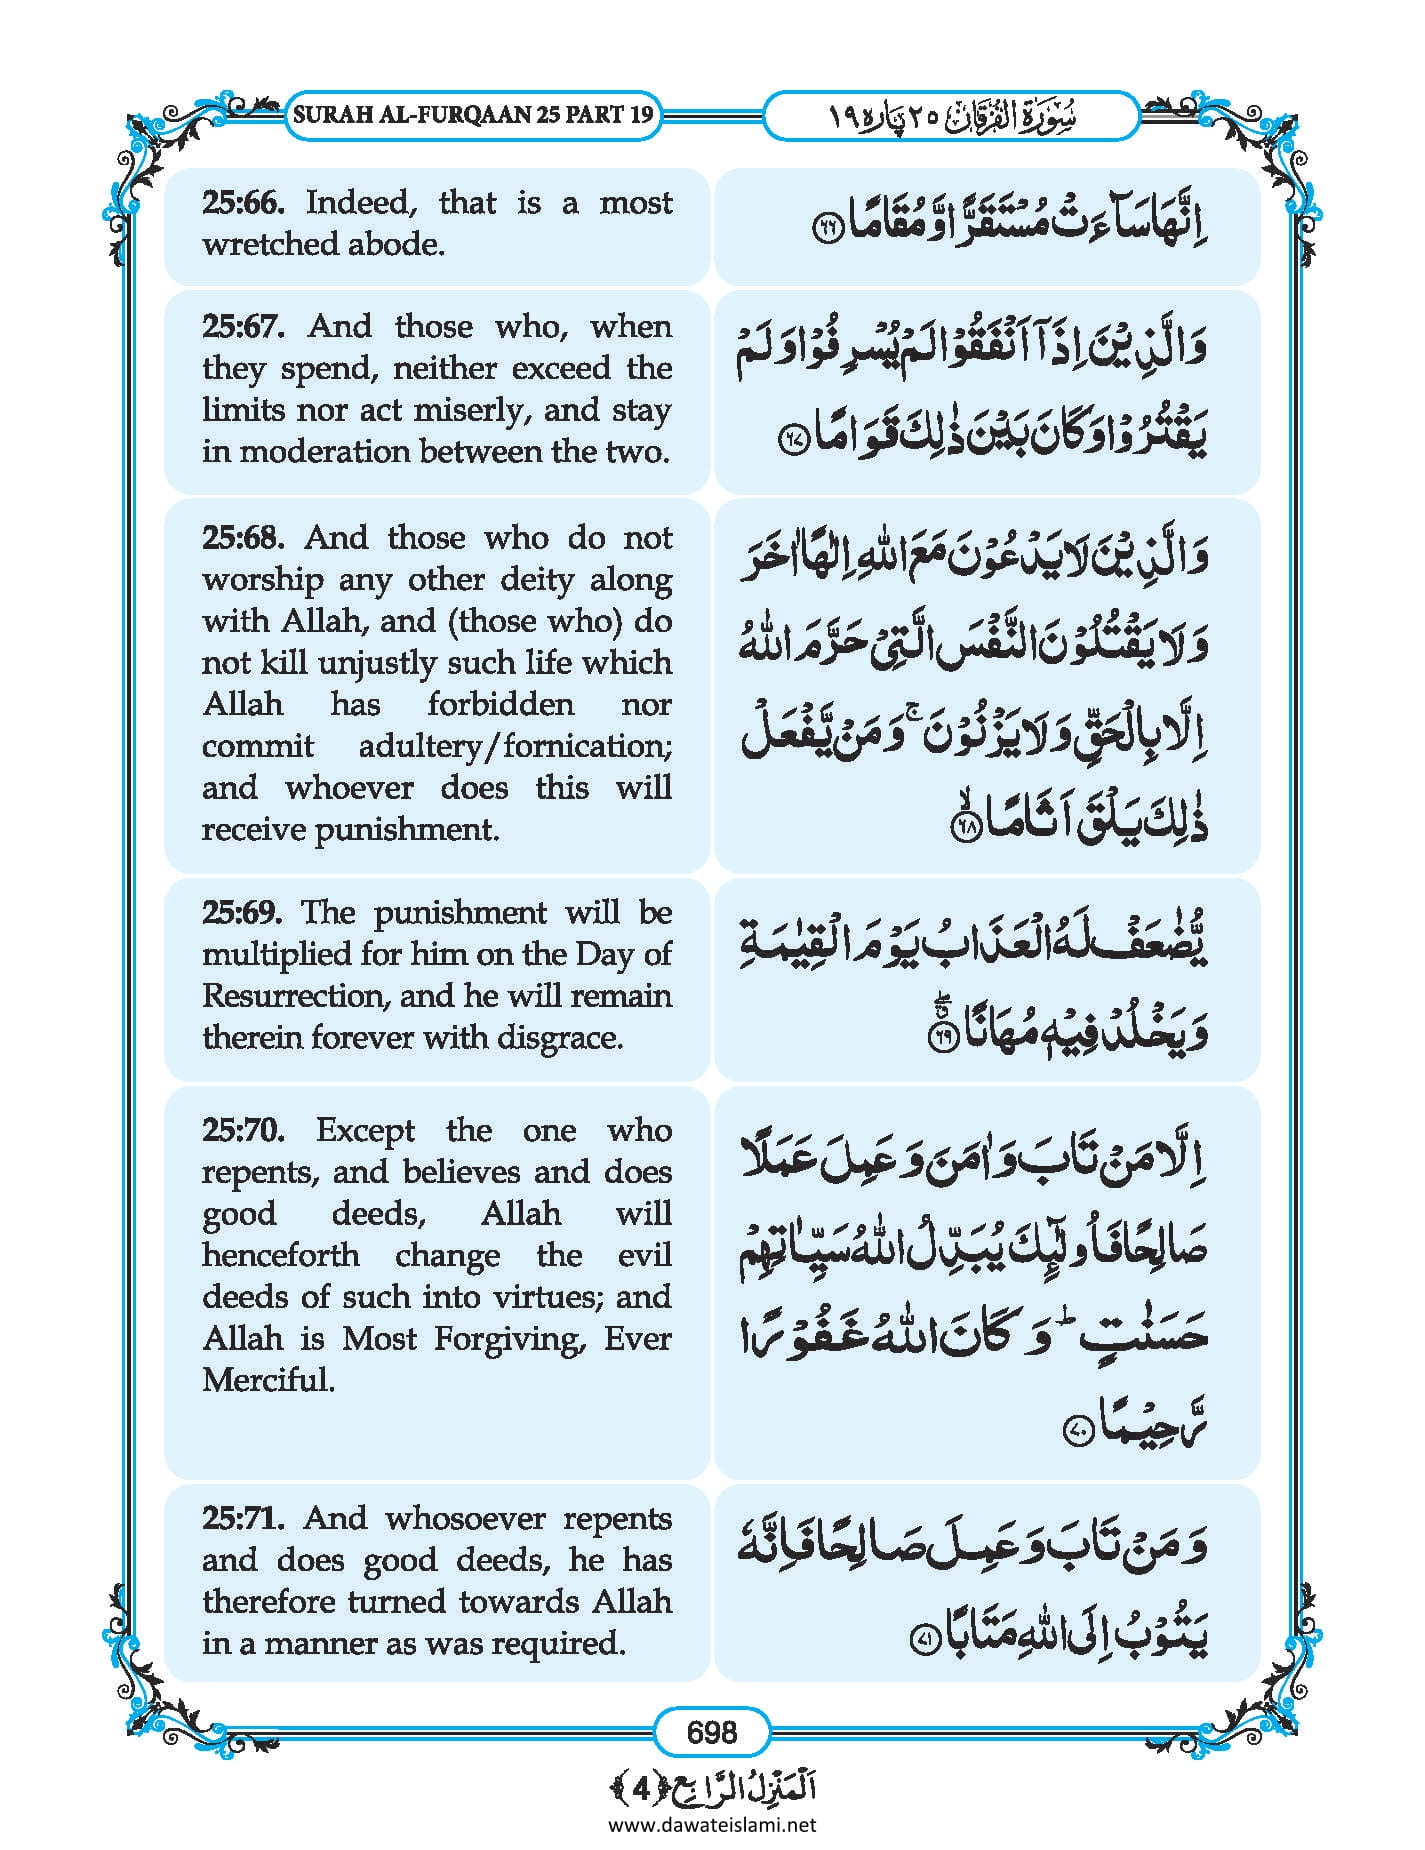 SURAH AL-FURQAAN 25 PART 19
سُوْرَةُ الْفُرْقَان ٢٥ پاره ١٩
25:66. Indeed, that is a most
wretched abode.
اِنَّهَا سَآءَتْ مُسْتَقَرًّا وَّ مُقَامًا ﴿٦٦﴾
25:67. And those who, when
they spend, neither exceed the
limits nor act miserly, and stay
in moderation between the two.
وَ الَّذِیْنَ اِذَاۤ اَنْفَقُوْا لَمْ یُسْرِفُوْا وَ لَمْ
یَقْتُرُوْا وَ كَانَ بَیْنَ ذٰلِكَ قَوَامًا ﴿٦٧﴾
25:68. And those who do not
worship any other deity along
with Allah, and (those who) do
not kill unjustly such life which
Allah has forbidden nor
commit adultery/fornication;
and whoever does this will
receive punishment.
وَ الَّذِیْنَ لَا یَدْعُوْنَ مَعَ اللّٰهِ اِلٰهًا اٰخَرَ
وَ لَا یَقْتُلُوْنَ النَّفْسَ الَّتِیْ حَرَّمَ اللّٰهُ
اِلَّا بِالْحَقِّ وَ لَا یَزْنُوْنَ ۚ وَ مَنْ یَّفْعَلْ
ذٰلِكَ یَلْقَ اَثَامًا ﴿ۙ٦٨﴾
25:69. The punishment will be
multiplied for him on the Day of
Resurrection, and he will remain
therein forever with disgrace.
یُّضٰعَفْ لَهُ الْعَذَابُ یَوْمَ الْقِیٰمَةِ
وَ یَخْلُدْ فِیْهٖ مُهَانًا ﴿ۗۖ٦٩﴾
25:70. Except the one who
repents, and believes and does
good deeds, Allah will
henceforth change the evil
deeds of such into virtues; and
Allah is Most Forgiving, Ever
Merciful.
اِلَّا مَنْ تَابَ وَ اٰمَنَ وَ عَمِلَ عَمَلًا
صَالِحًا فَاُولٰٓىِٕكَ یُبَدِّلُ اللّٰهُ سَیِّاٰتِهِمْ
حَسَنٰتٍ ؕ وَ كَانَ اللّٰهُ غَفُوْرًا
رَّحِیْمًا ﴿٧٠﴾
25:71. And whosoever repents
and does good deeds, he has
therefore turned towards Allah
in a manner as was required.
وَ مَنْ تَابَ وَ عَمِلَ صَالِحًا فَاِنَّهٗ
یَتُوْبُ اِلَی اللّٰهِ مَتَابًا ﴿٧١﴾
698
اَلْمَنْزِلُ الرَّابِع ﴿4﴾
www.dawateislami.net